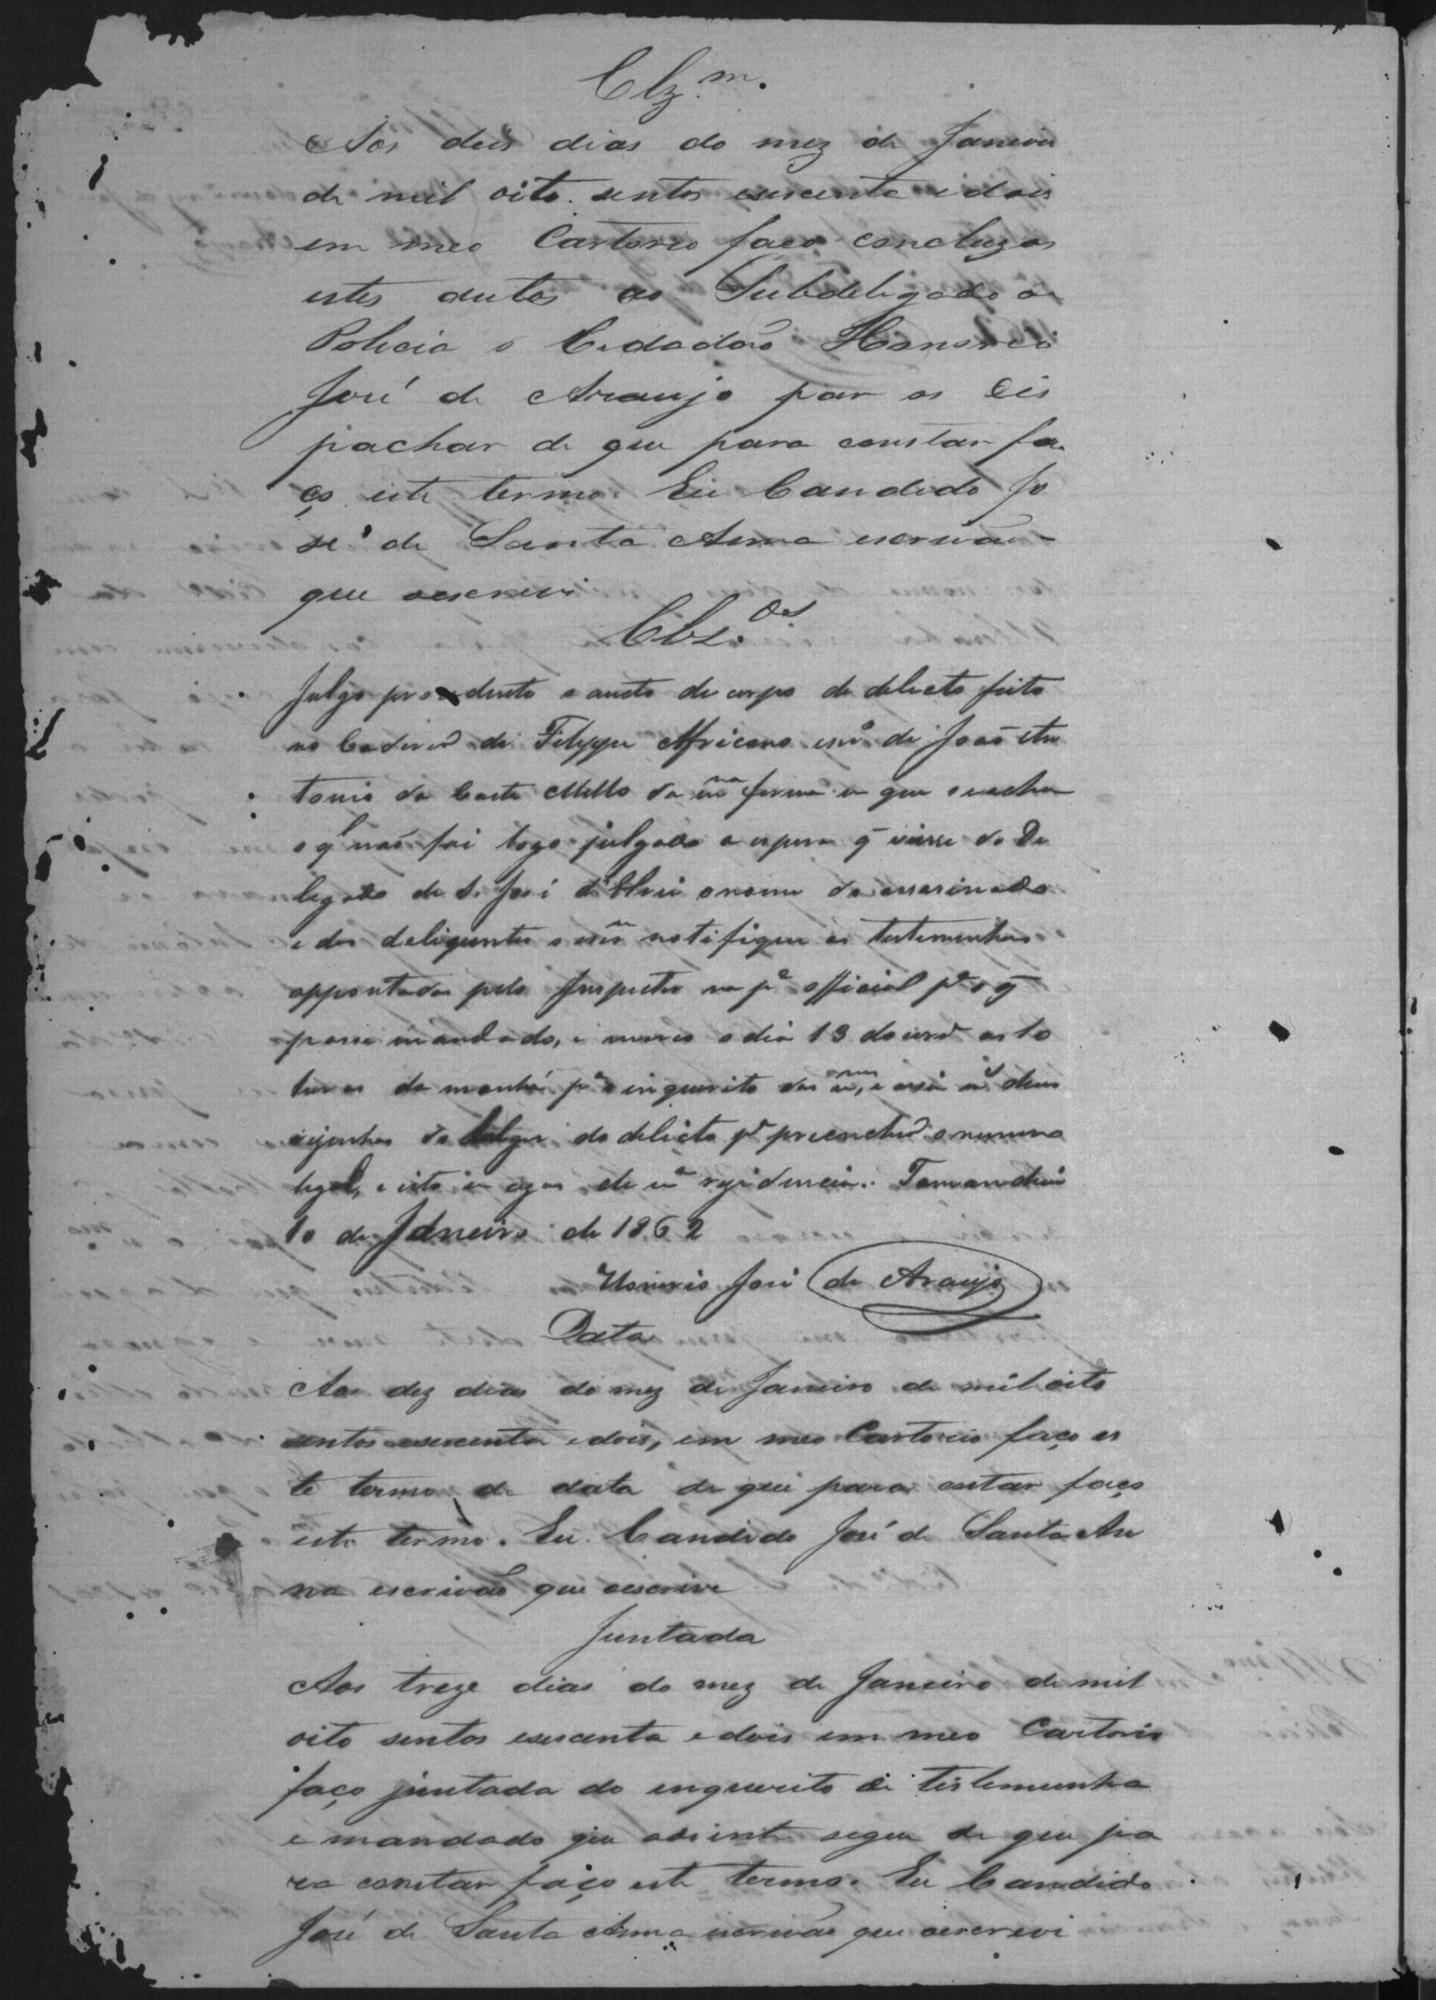 Clz.m.
Aos deis dias do mez de Janeiro
de mil oito sentos esecenta e dois
em meo Cartorio faço concluzos
estes autos ao Subdeligado de
Policia o Cidadão Honorio
José de Araujo par os Des
pachar de que para constar fa
ço este termo. Eu Candido Jo
sé de Santa Anna escrivão
que oescrevi
Clz.os
Julgo prosedente o aucto de corpo de delicto feito
no Cadaver de Felippe Africano escr.o de João An
tonio da Costa Mello da m.ma forma em que se acha
o q' não foi logo julgado a espera q' viesse do De
legado de S. José o nome do assassinado
e dos deliquentes o esm notifique as testemunhas
appontadas pelo Inspector na p.e official p.a o q'
passe mandado, e marco o dia 13 do corr.e as 10
horas da manhã p.a o inquerito das m.mas, e assim m.s duas
vezinhas do lugar do delicto p.a preencher o numero
legal, e isto em caza de m.a rezidencia. Tamandoá
10 de Janeiro de 1862
Honorio José de Araujo
Data
Aos dez dias do mez de Janeiro de mil oito
sentos esecenta e dois, em meo Cartorio faço es
te termo de data de que para contar faço
este termo. Eu Candido José de Santa An
na escrivão que oescrive
Juntada
Aos treze dias do mez de Janeiro de mil
oito sentos esecenta e dois em meo Cartorio
faço juntada do inquerito de testemunha
e mandado que adiente segue de que pa
ra constar faço este termo. Eu Candido
José de Santa Anna escrivão que oescrevi